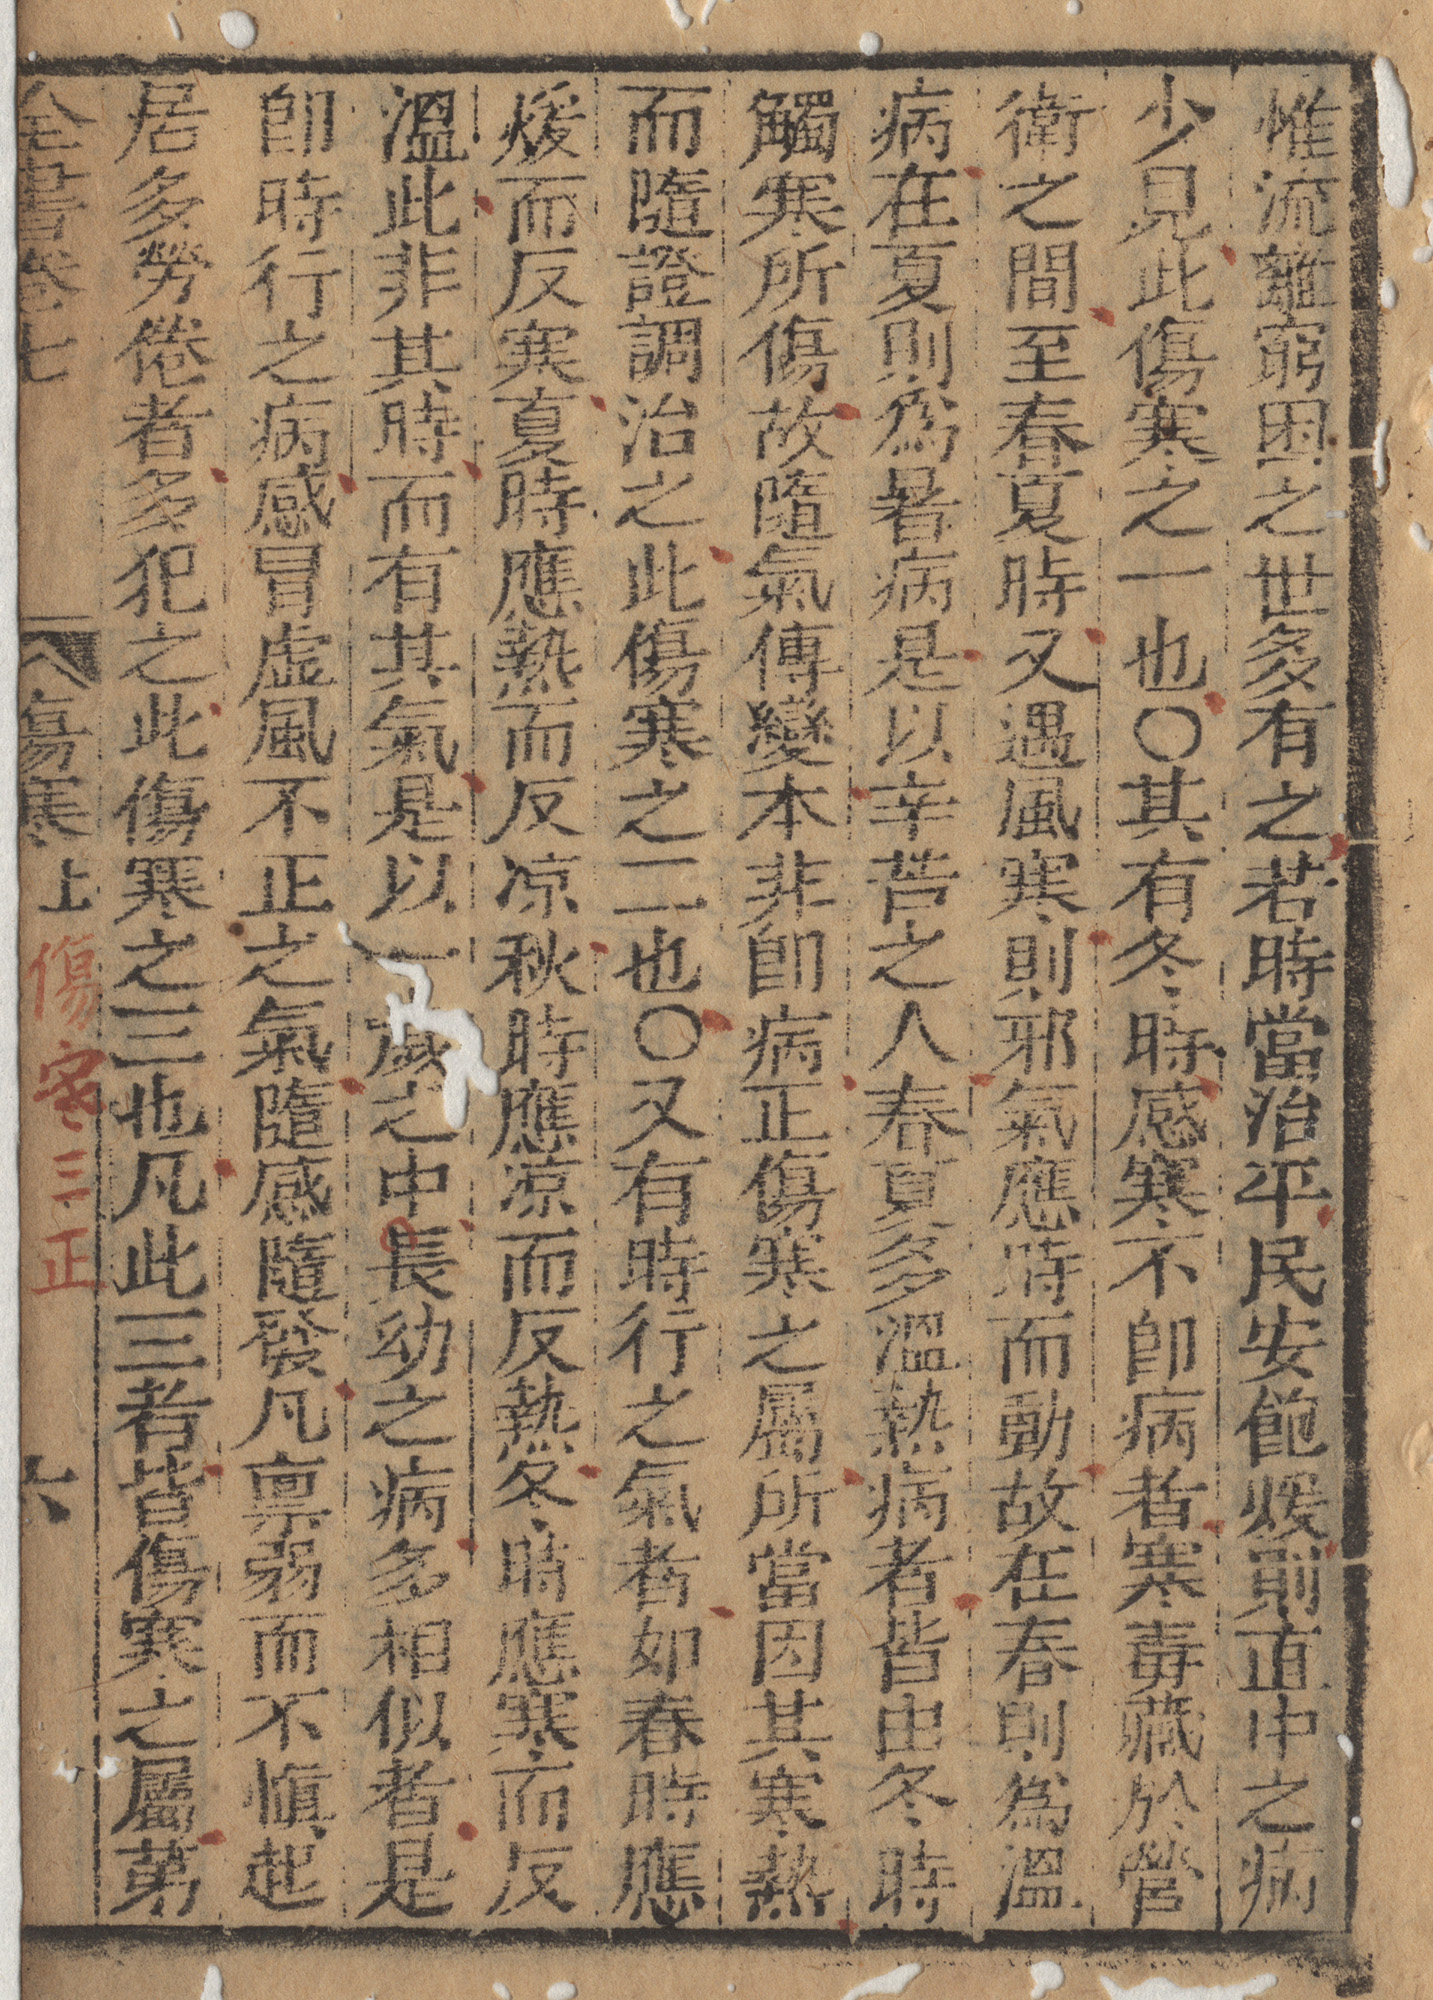 惟流離窮困之世多有之若時當治平民安飽煖則直中之病
少見此傷寒之一也〇其有冬時感寒不卽病者寒毒藏於營
衛之間至春夏時又遇風寒則邪氣應時而動故在春則爲溫
病在夏則爲暑病是以辛苦之人春夏多溫熱病者皆由冬時
觸寒所傷故隨氣傳變本非卽病正傷寒之屬所當因其寒熱
而隨證調治之此傷寒之二也〇又有時行之氣者如春時應
煖而反寒夏時應熱而反凉秋時應凉而反熱冬時應寒而反
溫此非其時而有其氣是以一歲之中長幼之病多相似者是
卽時行之病感冒虛風不正之氣隨感隨發凡禀弱而不慎起
居多勞倦者多犯之此傷寒之三也凡此三者皆傷寒之屬第
全書卷七 傷寒上 六
傷寒三正